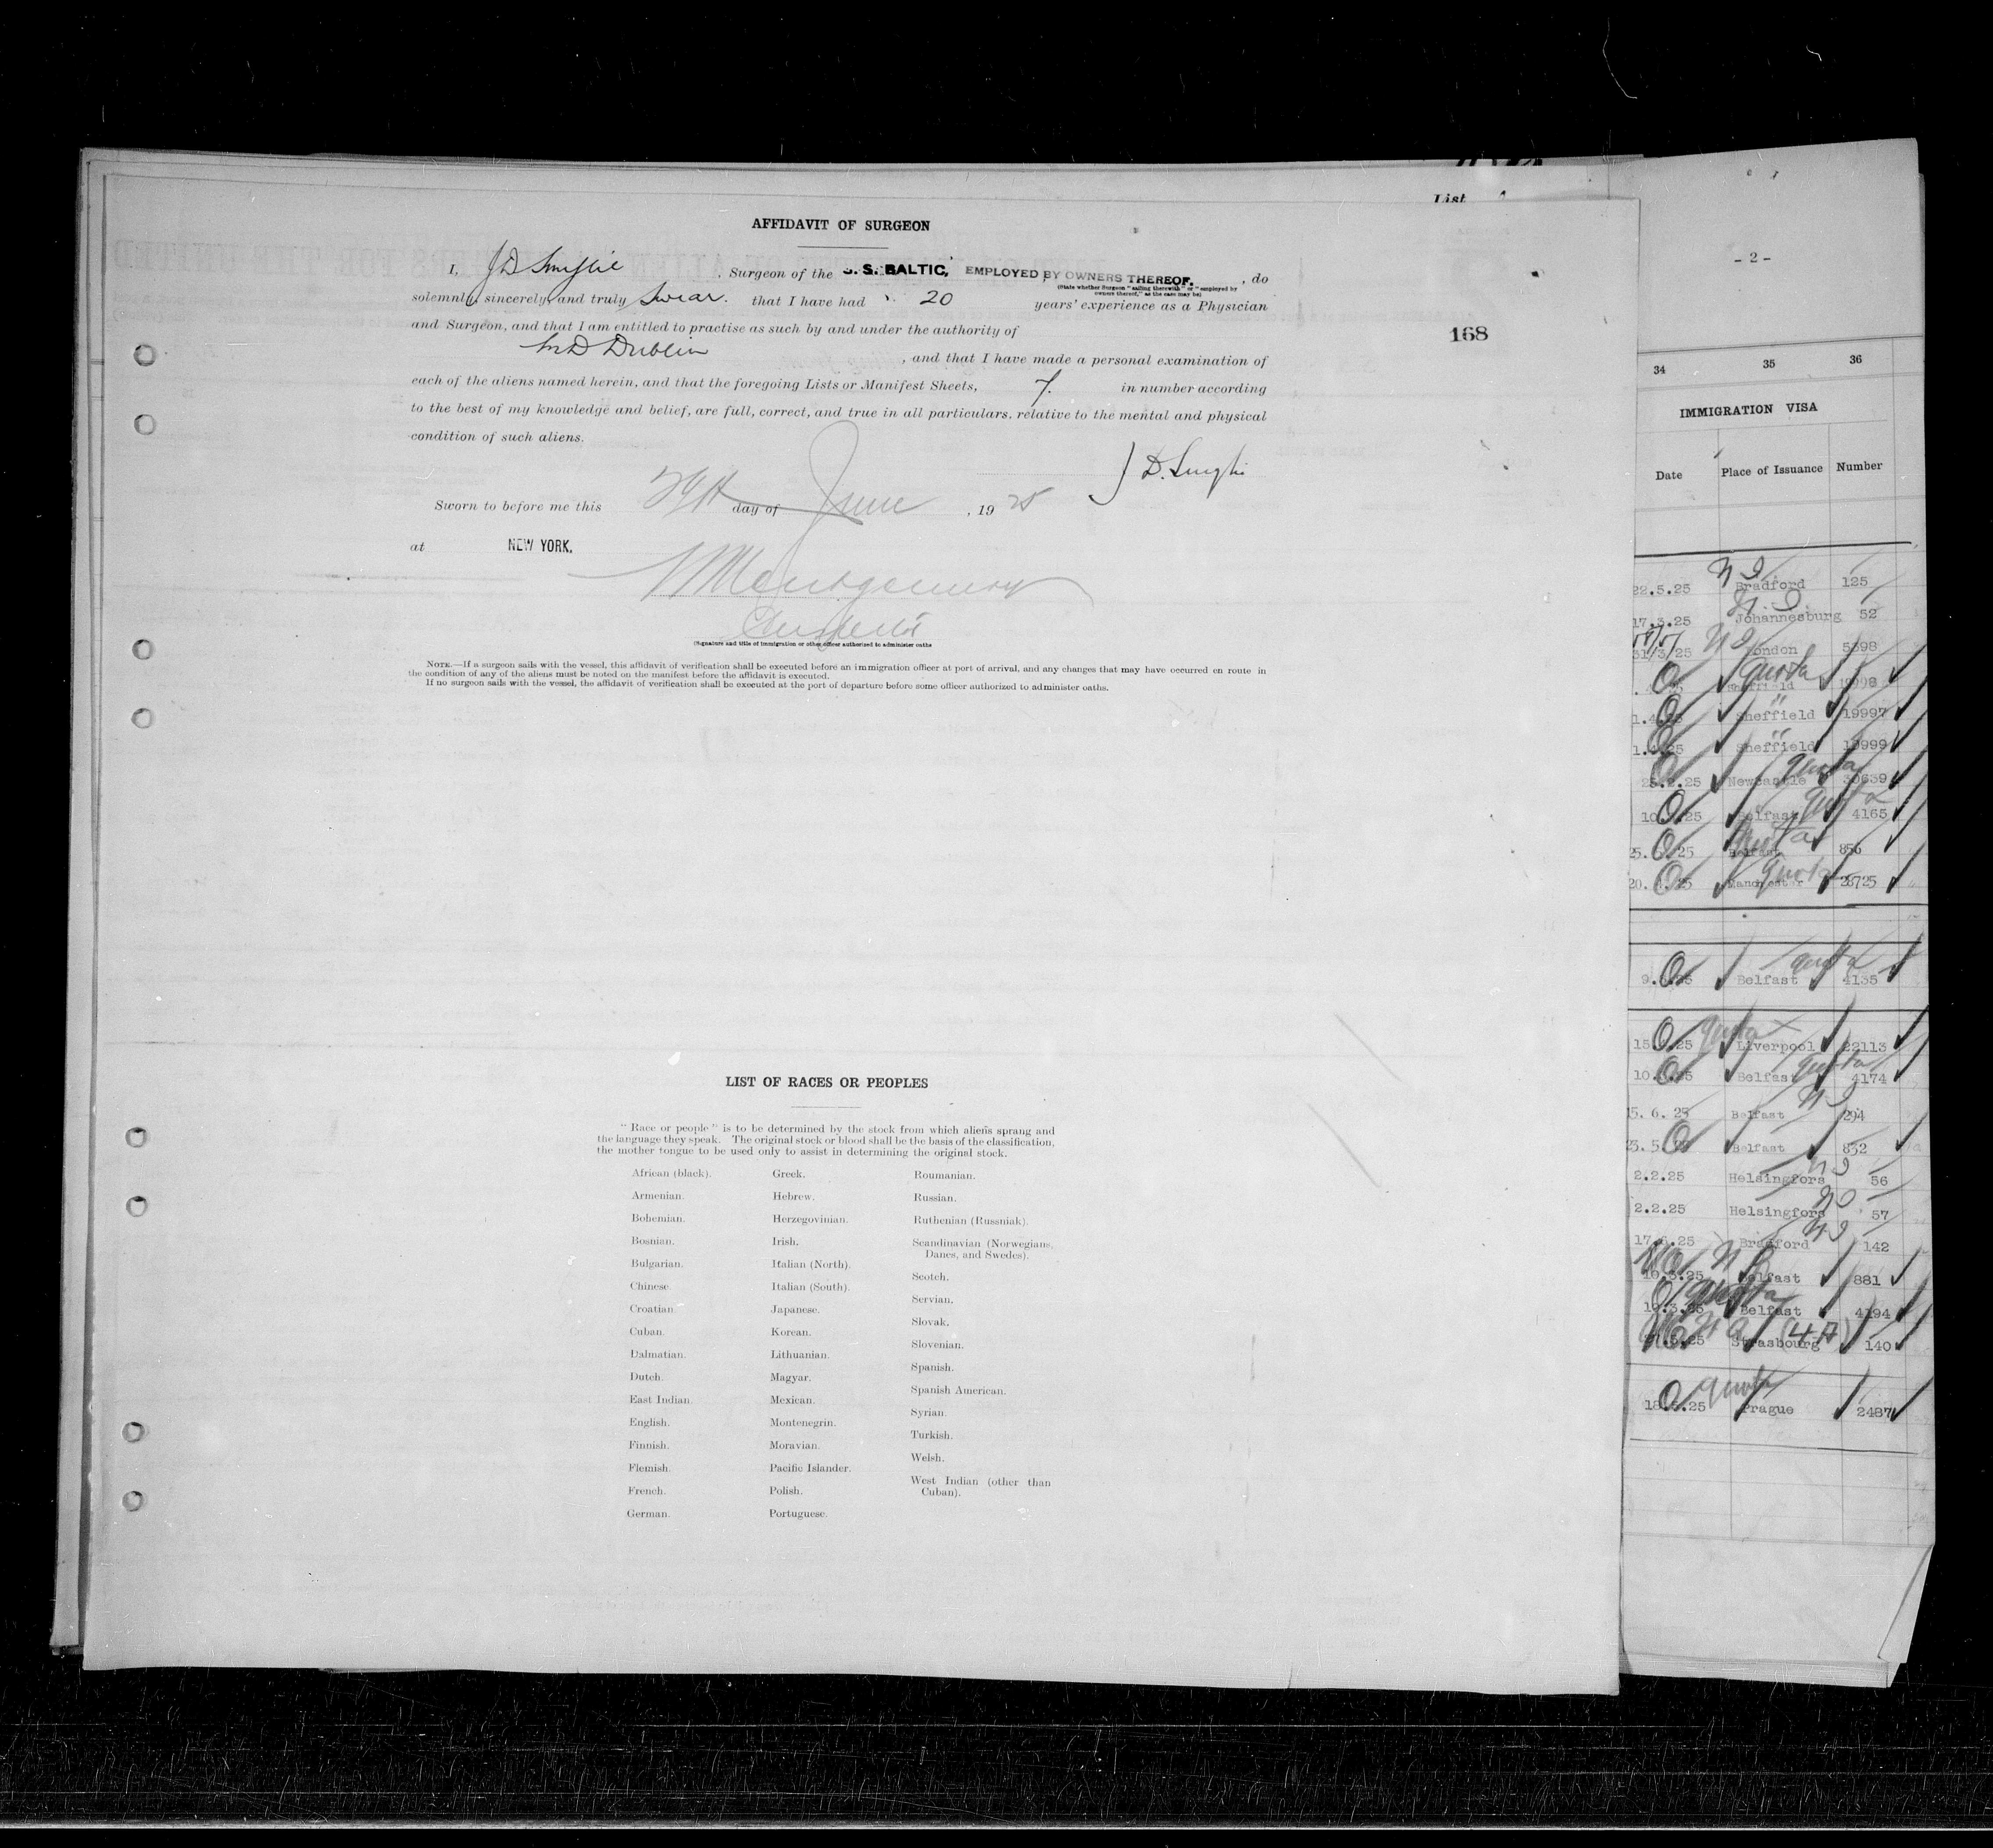 AFFIDAVIT OF SURGEON
I, J D Smylie, Surgeon of the S. S. BALTIC, EMPLOYED BY OWNERS THEREOF. , do
(State whether Surgeon "sailing therewith" or "employed by
owners thereof," as the case may be)
solemnly, sincerely, and truly swear. that I have had 20 years' experience as a Physician
and Surgeon, and that I am entitled to practise as such by and under the authority of
M D Dublin , and that I have made a personal examination of
each of the aliens named herein, and that the foregoing Lists or Manifest Sheets, 7. in number according
to the best of my knowledge and belief, are full, correct, and true in all particulars, relative to the mental and physical
condition of such aliens.
J D. Smylie
Sworn to before me this day of June , 19 25
at NEW YORK.
Montgomery
(Signature and title of immigration or other officer authorized to administer oaths
NOTE.—If a surgeon sails with the vessel, this affidavit of verification shall be executed before an immigration officer at port of arrival, and any changes that may have occurred en route in
the condition of any of the aliens must be noted on the manifest before the affidavit is executed.
If no surgeon sails with the vessel, the affidavit of verification shall be executed at the port of departure before some officer authorized to administer oaths.
List
168
LIST OF RACES OR PEOPLES
"Race or people" is to be determined by the stock from which aliens sprang and
the language they speak. The original stock or blood shall be the basis of the classification,
the mother tongue to be used only to assist in determining the original stock.
African (black).
Armenian.
Bohemian.
Bosnian.
Bulgarian.
Chinese.
Croatian.
Cuban.
Dalmatian.
Dutch.
East Indian.
English.
Finnish.
Flemish.
French.
German.
Greek.
Hebrew.
Herzegovinian.
Irish.
Italian (North).
Italian (South).
Japanese.
Korean.
Lithuanian.
Magyar.
Mexican.
Montenegrin.
Moravian.
Pacific Islander.
Polish.
Portuguese.
Roumanian.
Russian.
Ruthenian (Russniak).
Scandinavian (Norwegians,
Danes, and Swedes).
Scotch.
Servian.
Slovak.
Slovenian.
Spanish.
Spanish American.
Syrian.
Turkish.
Welsh.
West Indian (other than
Cuban).
- 2 -
34 35 36
IMMIGRATION VISA
Date Place of Issuance Number
22.5.25 Bradford 125
17.3.25 Johannesburg 52
31/3/25 London 5398
quota Sheffield
Sheffield 19997
Sheffield 19999
quota Newcastle 30639
quota Belfast 4165
Belfast 856
quota Manchester 28725
quota Belfast 4135
quota Liverpool 22113
quota Belfast 4174
5. 6. 25 Belfast 294
Belfast 832
2.2.25 Helsingfors 56
2.2.25 Helsingfors 57
Bradford 142
Belfast 881
quota Belfast 4194
Strasbourg (4A) 140
quota Prague 2487